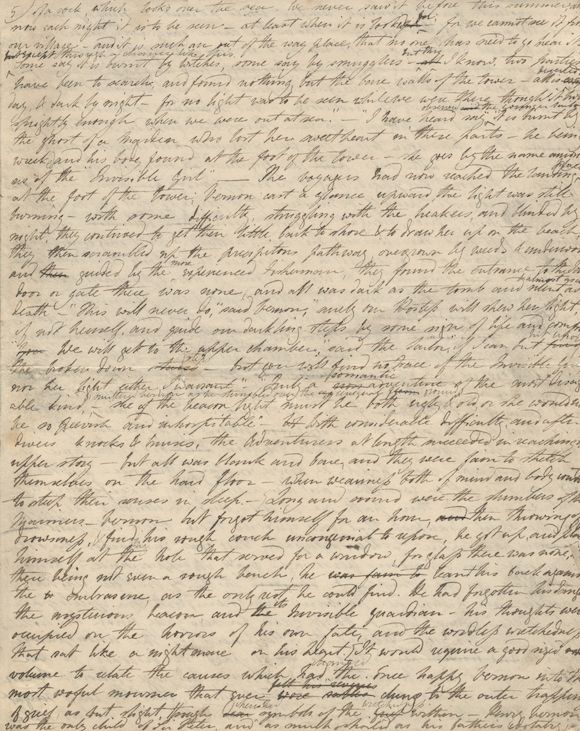 5) of a rock which looks over the sea. We never saw it before this summer and
now each night it is to be seen - at least when it is looked for - for we cannot see it from
our village - and it is such an out of the way place, that no one has need to go near it
some say it is burnt by witches, some say by smugglers - I know, two parties
have been to search, and found nothing but the bare walls of the tower -
by day, & dark by night - for no light was to be seen while we were there though it
brightly enough when we were out at sea. - "I have heard say, it is burnt by
the ghost of a maiden who lost her sweetheart in these parts - he being
wrecked and his body found at the foot of the tower - she goes by the name among
us of the "Invisible Girl ____ The voyagers had now reached the landing
at the foot of the tower, Vernon cast a glance upward the light was still
burning - with some difficulty, struggling with the breakers, and blinded by
night, they continued to get their little bark to shore & to draw her up on the beach
they then scrambled up the precipitous pathway overgrown by weeds & underwood
and guided by the more experienced fisherman, they found the entrance to the
door or gate there was none, and all was dark as the tomb and silent as
death "This will never do," said Vernon, "surely our Hostess will shew her light
if not herself, and guide our darkling steps by some sign of life and comfort
We will get to the upper chamber," said the sailor, "if I can but
the broken down but you will find no trace of the Invisible Girl
nor her light either I warrant". "Truly a romantic adventure of the most disagreeable
able kind," muttered Vernon as he stumbled over the ground she of the beacon light must be both ugly & old or she would not
be so peevish and inhospitable. With considerable difficulty and after
divers knocks & bruises, the adventurers at length succeeded in reaching
upper story - but all was blank and bare, and they were fain to stretch
themselves on the hard floor - when weariness both of mind and body
to steep their senses in sleep. Long and sound were the slumbers of the
Mariners - Vernon but forgot himself for an hour, then throwing off
drowsiness, & finding his rough couch uncongenial to repose, he got up, and placed
himself at the hole that served for a window for glass there was none,
there being not even a rough bench, he leant his back against
the embrasure, as the only rest he could find. He had forgotten his danger
the mysterious beacon and its Invisible guardian - his thoughts were
occupied on the horrors of his own fate, and the wordless wretchedness
that sat like a nightmare on his heart. It would require a good sized
volume to relate the causes which had changed the once happy Vernon into the
most woful mourner that ever clung to the outer trappings
of grief as but slight though cherished symbols of the wretchedness within - Henry Vernon
was the only child of Sir Peter, and as much spoiled as his father's